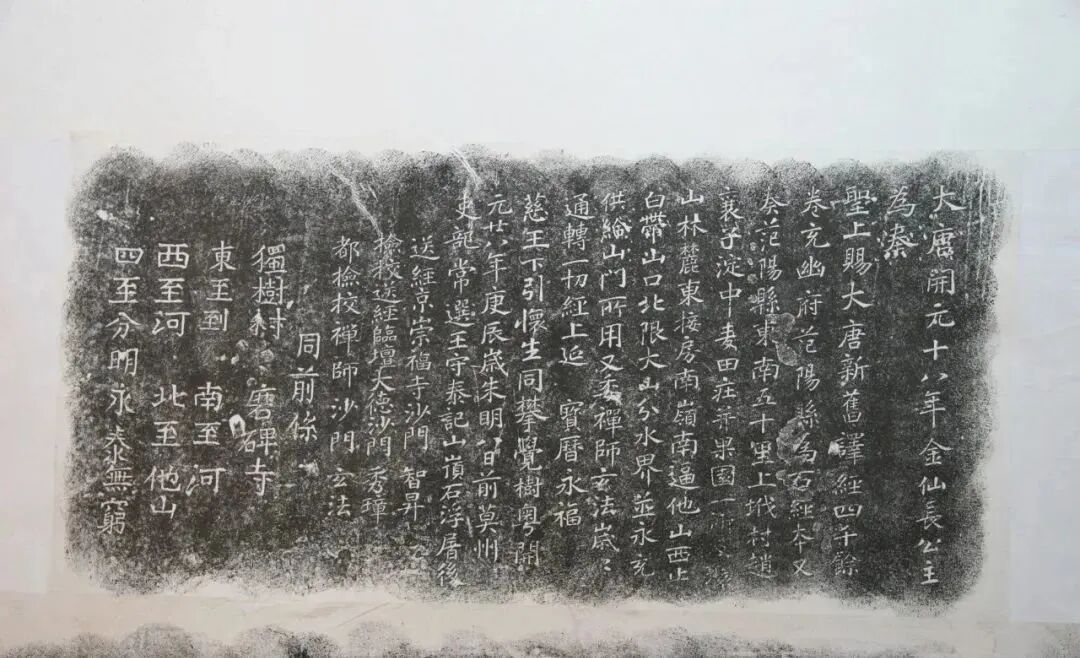 大唐開元十八年金仙長公主
為奏
聖上賜大唐新舊譯經四千餘
卷充幽府范陽縣為石經本又
奏范陽縣東南五十里上垡村趙
襄子淀中麦田庄并果園一所
山林麓東接房南嶺南逼他山西止
白帶山口北限大山分水界並永充
供給山門所用又委禪師玄法歲々
通轉一切經上延 寶曆永福
慈王下引懷生同攀覺樹粤開
元廿八年庚辰歲朱明八日前莫州
吏部常選王守泰記山頂石浮屠後
送經京崇福寺沙門 智昇
檢校送經臨壇大德沙門 秀璋
都檢校禪師沙門 玄法
同前條
獨樹村 磨碑寺
東至到 南至河
西至河 北至他山
四至分明永泰無窮